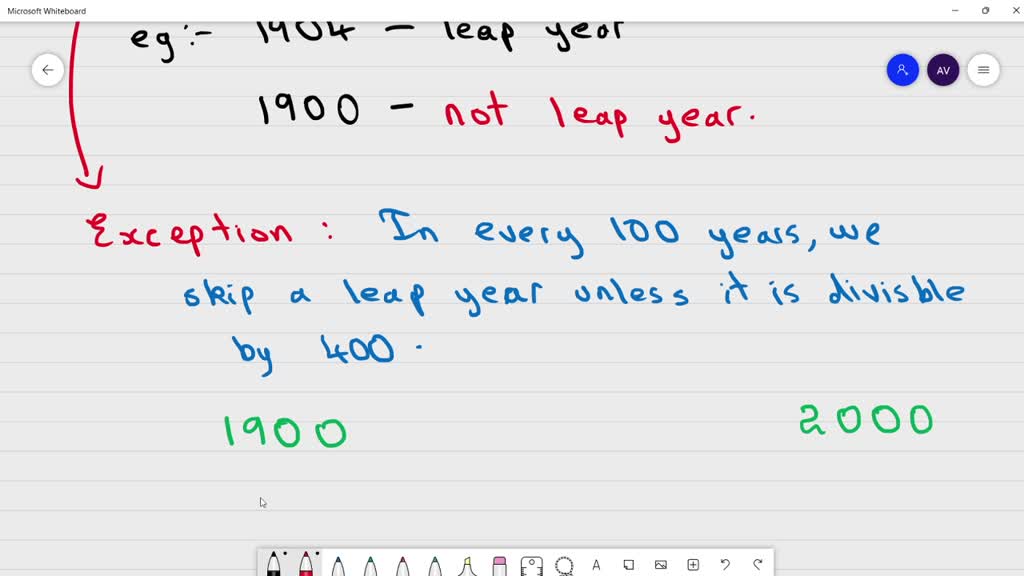 Microsoft Whiteboard
eg:- 1904 - leap year
AV
1900 - not leap year.
Exception : In every 100 years, we
skip a leap year unless it is divisble
by 400.
1900 2000
A